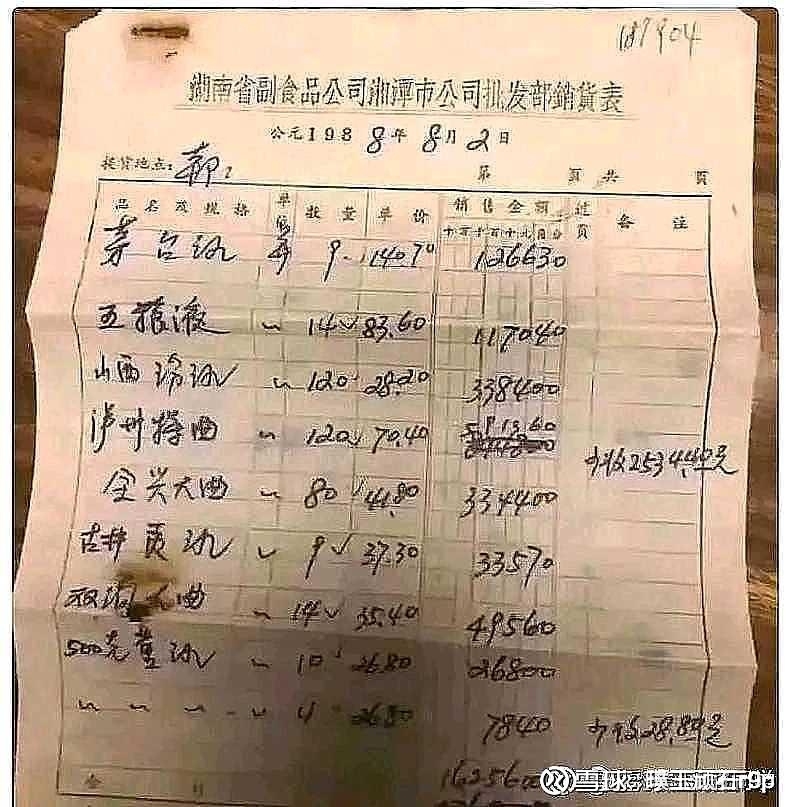 187904
湖南省副食品公司湘潭市公司批发部销货表
公元1988年8月2日
提货地点： 第 页共 页
品名及规格 单位 数量 单价 销售金额 过页 备注
十万千百十元角分
茅台酒 9 140.70 126630
五粮液 〃 14 83.60 117040
山西汾酒 〃 120 28.20 338400
泸州特曲 〃 120 70.40 591360 少收2534.40元
全兴大曲 〃 80 41.80 334400
古井贡酒 〃 9 37.30 33570
双沟大曲 〃 14 35.40 49560
500克董酒 〃 10 26.80 26800
〃 〃 〃 〃 〃 4 26.80 7840 少收28.80元
合计 1625600
雪球：璞玉顽石r9p